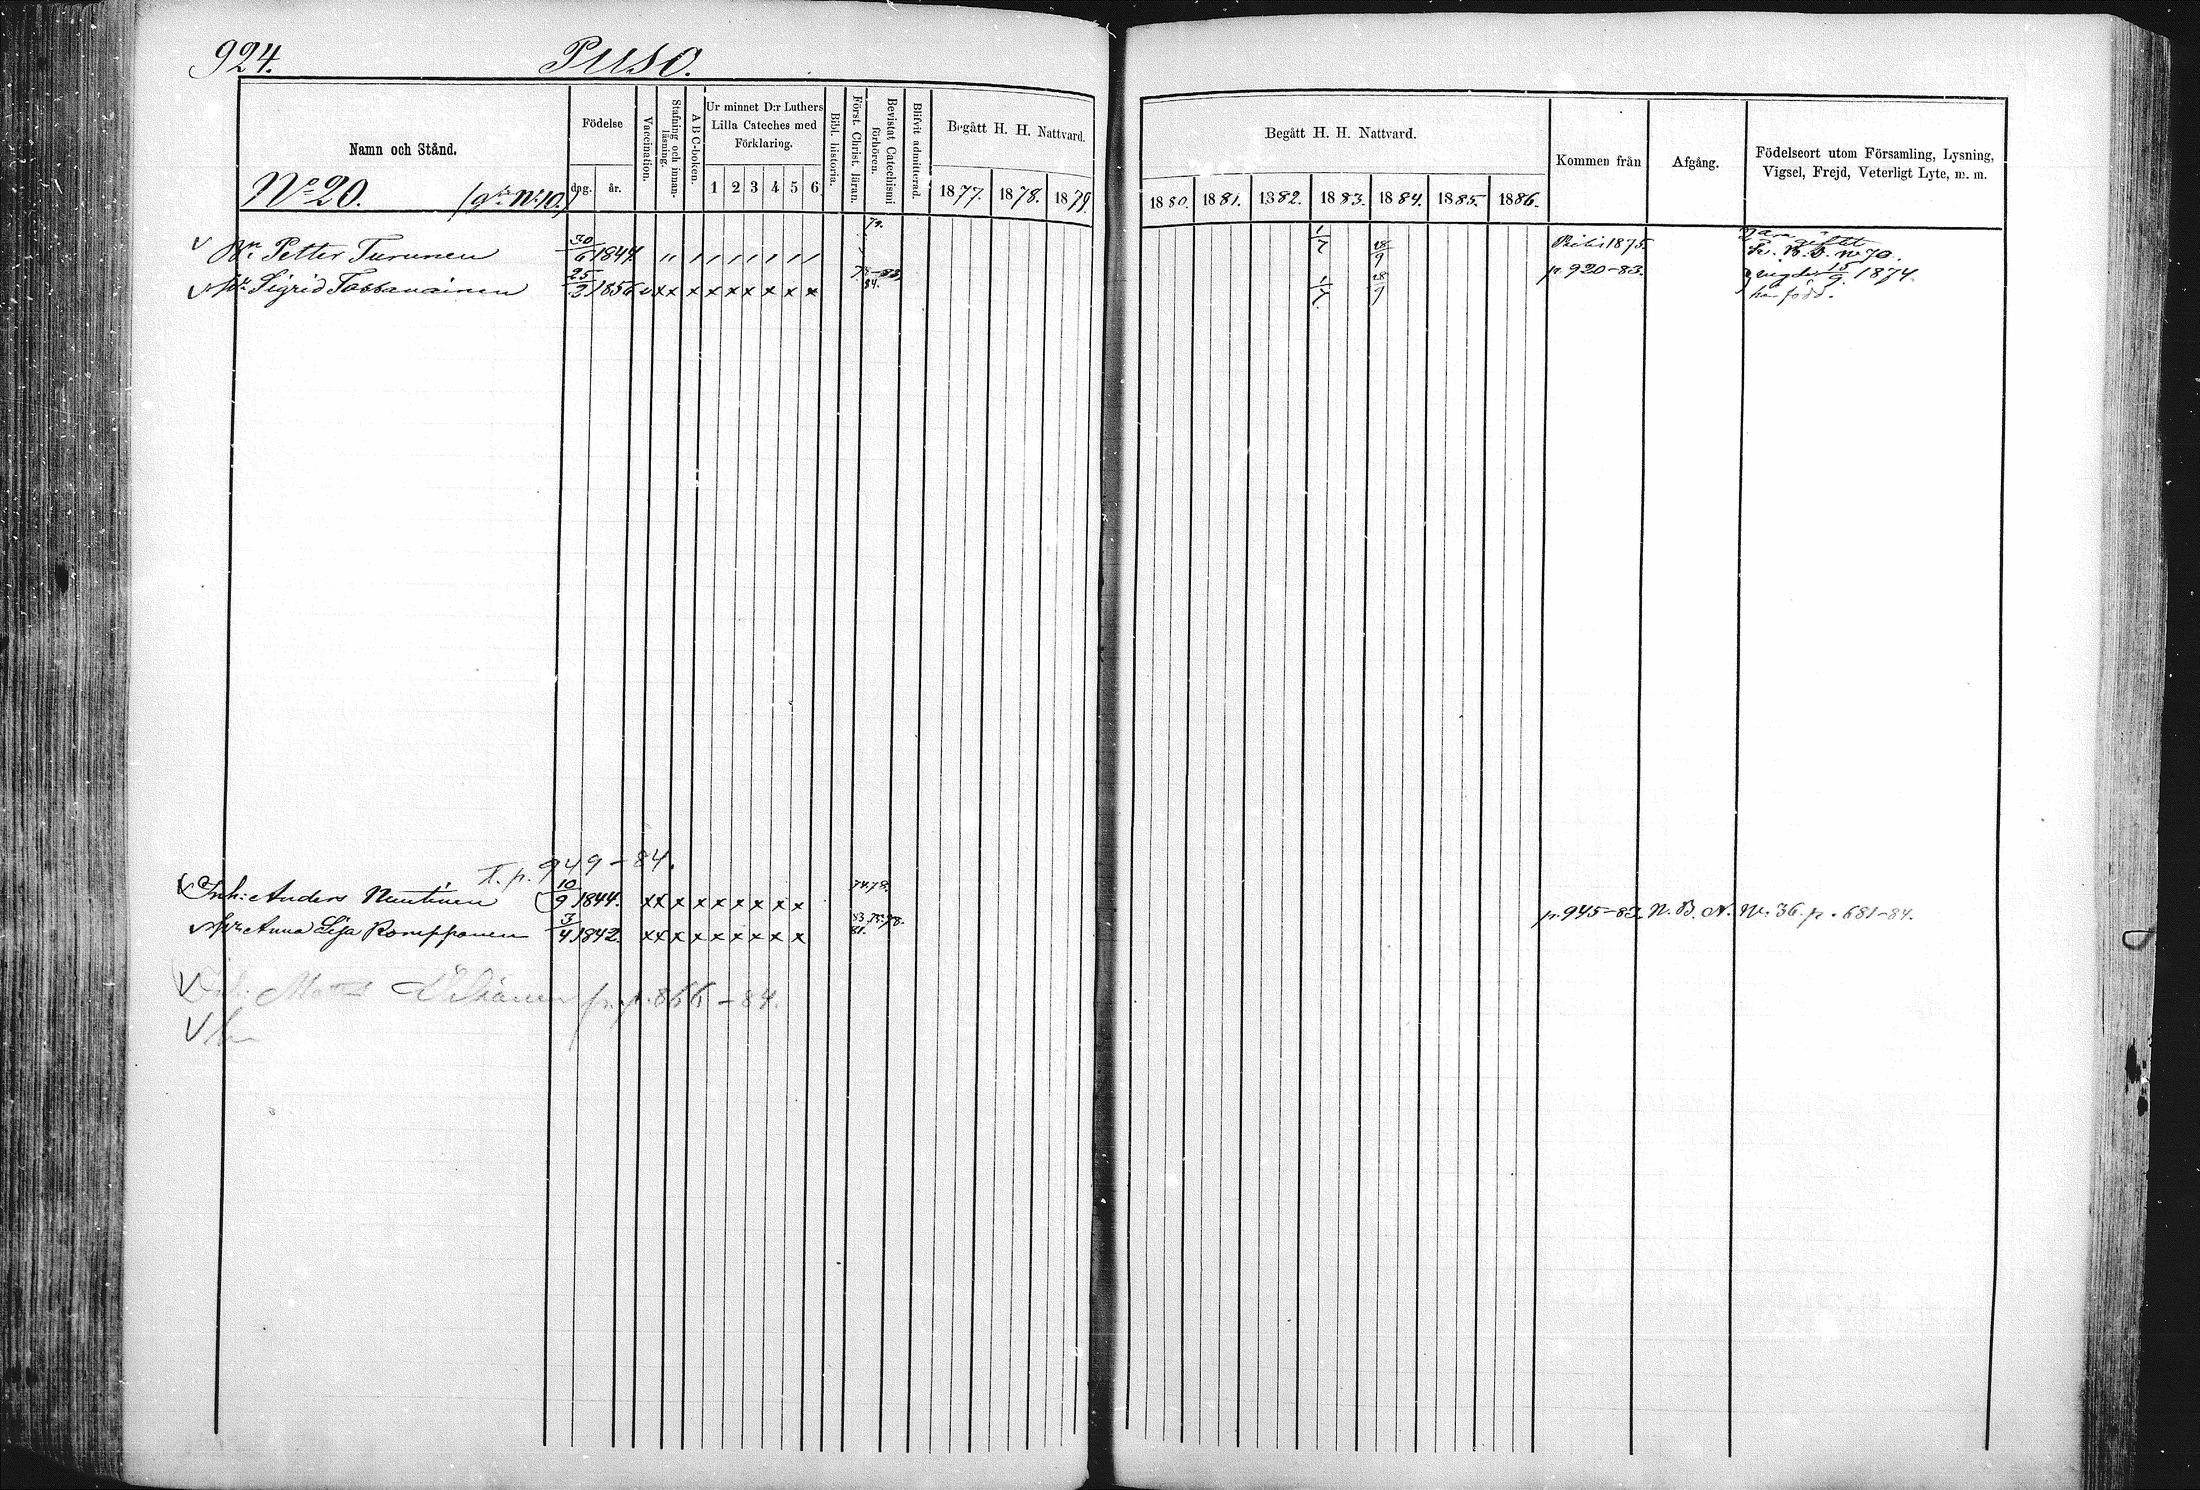 924.
Puso.
Namn och Stånd.
Födelse
dag.
år.
Vaccination.
Stafning och innanläsning.
ABC-boken.
Ur minnet D:r Luthers
Lilla Cateches med
Förklaring.
1 2 3 4 5 6
Bibl. historia.
Först. Christ. läran.
Bevistat Catechismi förhören.
Blifvit admitterad.
Begått H. H. Nattvard.
1877. 1878. 1879.
Begått H. H. Nattvard.
1880. 1881. 1882. 1883. 1884. 1885. 1886.
Kommen från
Afgång.
Födelseort utom Församling, Lysning,
Vigsel, Frejd, Veterligt Lyte, m. m.
No 20.
No 10.
Petter Turunen 30/6 1844. 1/7 18/9 1875. No 70.
Sigrid Tossavainen 25/2 1856 x x x x x x x x x 84. 1/7 18/9 p. 920-83. 15/9 1874.
född.
T. p. 949-84.
Inh: Anders Nuutinen 10/9 1844. x x x x x x x x x p. 945-83. N. B. A. No. 36. p. 681-84.
Anna Lisa Romppanen 3/4 1842. x x x x x x x x x 81.
Matts p. 866-84.